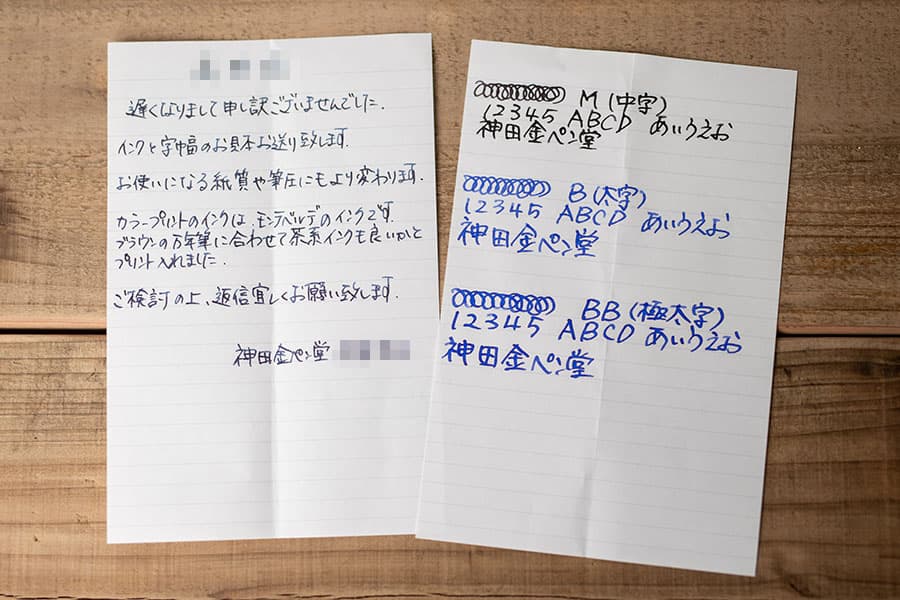 遅くなりまして申し訳ございませんでした.
インクと字幅のお見本お送り致します.
お使いになる紙質や筆圧にもより変わります.
カラープリントのインクは、モンテベルデのインクです.
ブラウンの万年筆に合わせて茶系インクも良いかと
プリント入れました.
ご検討の上、返信宜しくお願い致します.
神田金ペン堂
M (中字)
12345 ABCD あいうえお
神田金ペン堂
B (太字)
12345 ABCD あいうえお
神田金ペン堂
BB (極太字)
12345 ABCD あいうえお
神田金ペン堂